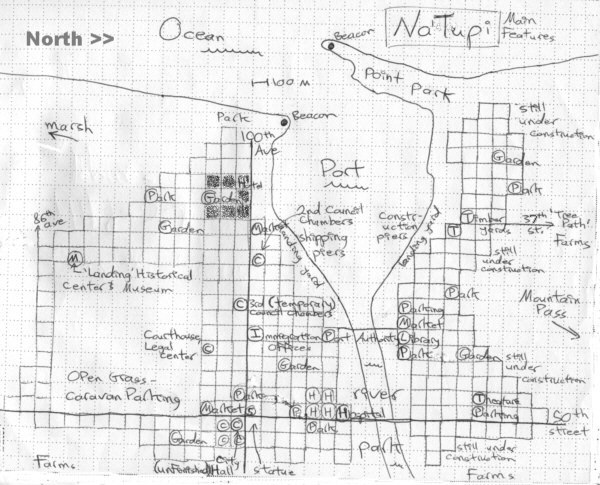 North >>
Ocean
Na'Tupi
Main
Features
Beacon
Point
Park
100 M
Beacon
Park
100th
Ave
marsh
still
under
construction
Garden
Park
Port
Hotel
Garden
Park
Garden
86th
ave
Market
2nd Council
Chambers
shipping
piers
landing yard
Construction
piers
landing yard
Timber
yards
T
37th
st.
'Tree
Path'
Farms
still
under
construction
M
'Landing' Historical
Center & Museum
C
C
3rd (temporary)
Council Chambers
Park
Mountain
Pass
Parking
Market
Library
Park
Immigration
Offices
Port Authority
Courthouse,
Legal
Center
C
Garden
Garden
still
under
construction
Open Grass -
Caravan Parking
Park
Market
S
P
H H
H H Hospital
Park
river
Theature
Parking
50th
street
C C
C C
Garden
(unfinished)
City
Hall
statue
Park
still
under
construction
Farms
Farms